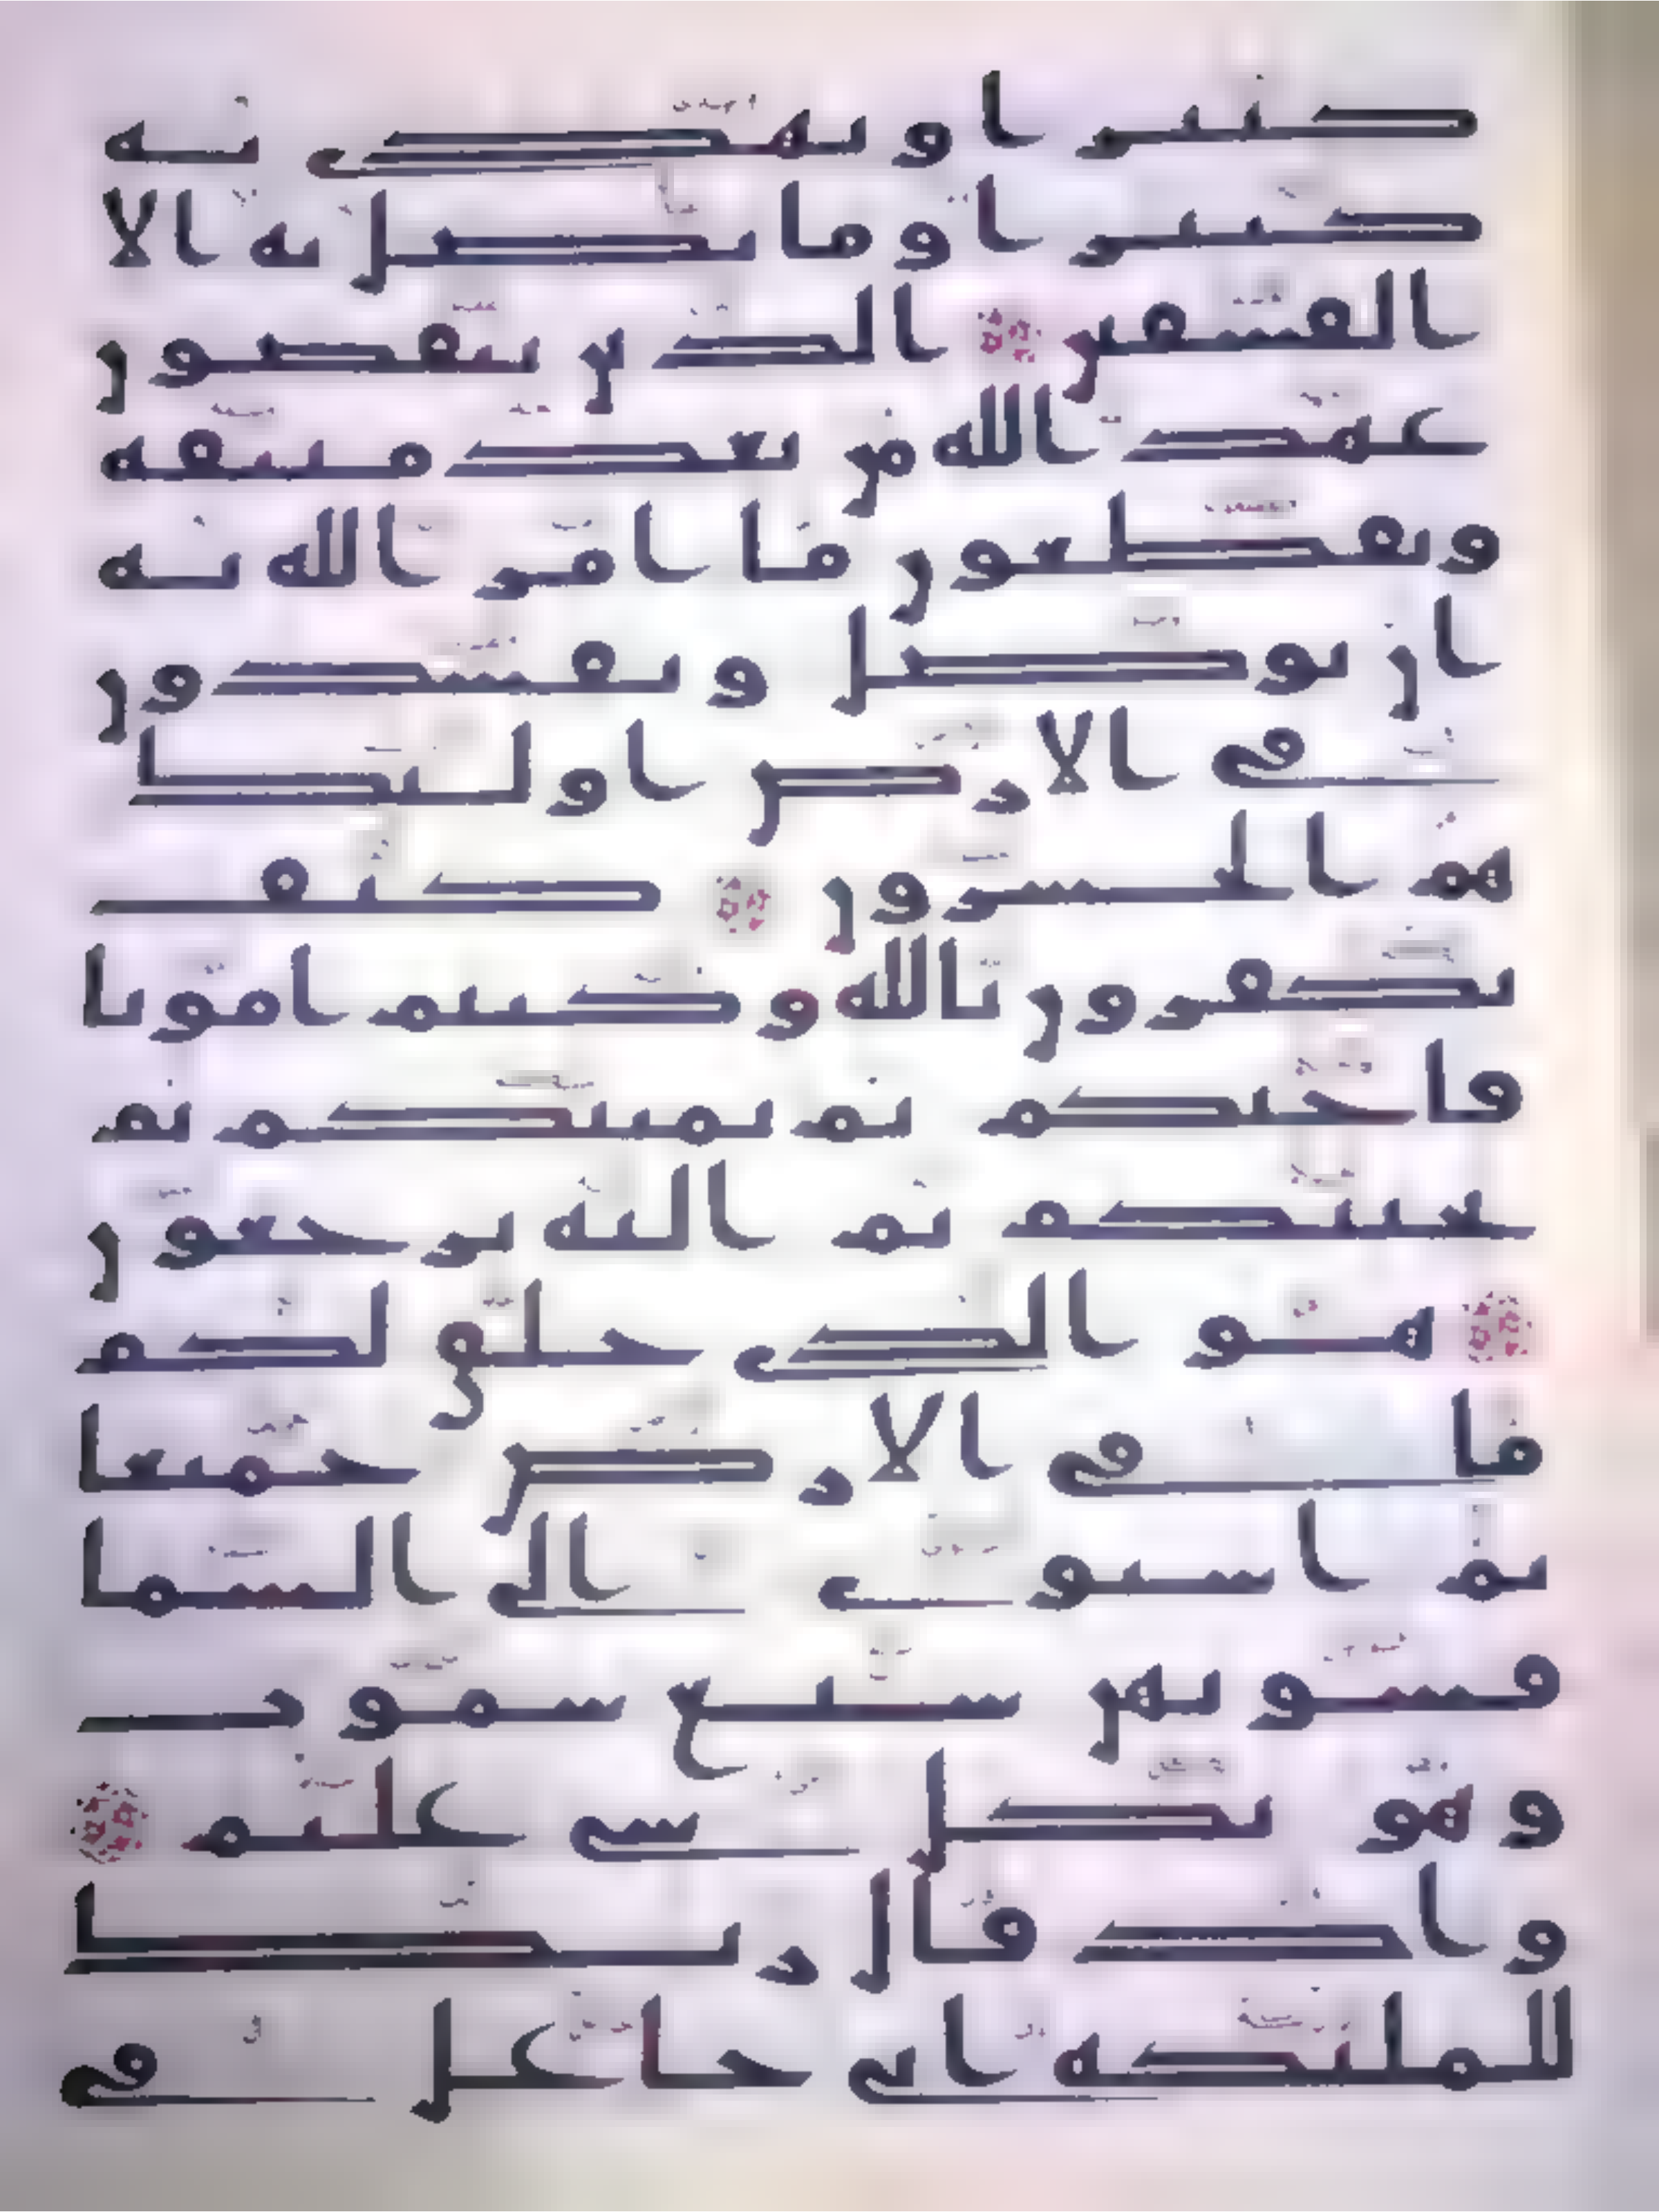 كثيرا ويهدي به
كثيرا وما يضل به الا
الفسقين الذين ينقضون
عهد الله من بعد ميثقه
ويقطعون ما امر الله به
ان يوصل ويفسدون
في الارض اولئك
هم الخسرون كيف
تكفرون بالله وكنتم اموتا
فاحيكم ثم يميتكم ثم
يحييكم ثم اليه ترجعون
هو الذي خلق لكم
ما في الارض جميعا
ثم استوى الى السما
فسويهن سبع سموت
وهو بكل شي عليم
واذ قال ربك
للملئكة اني جاعل في